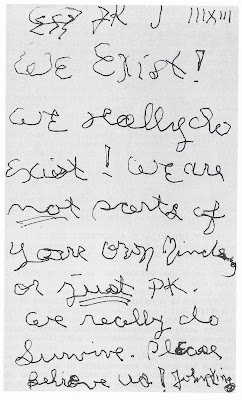 JK J IIIXIII
We Exist!
We really do
exist! We are
not parts of
youre own Minds
or just PK.
We really do
Survive. Please
Believe us! John King